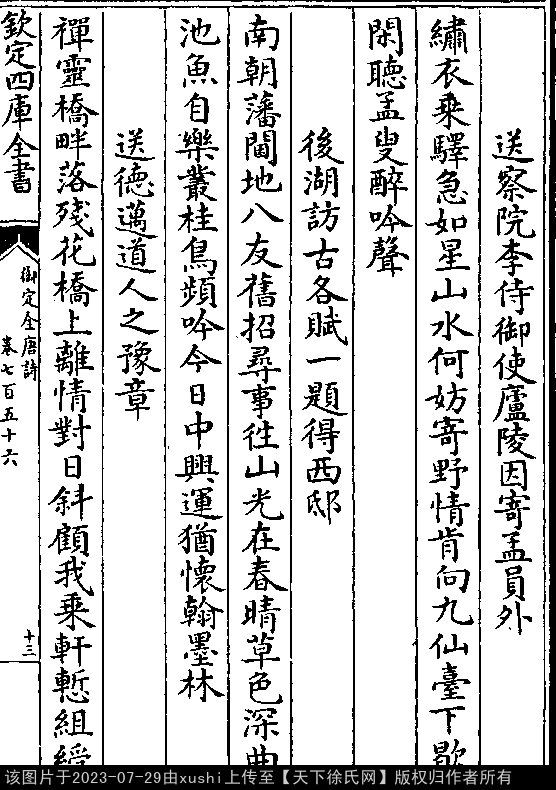 送察院李侍御使廬陵因寄孟員外
繡衣乗驛急如星山水何妨寄野情肯向九仙臺下歇
閑聽孟叟醉吟聲
後湖訪古各賦一題得西邸
南朝藩閫地八友舊招尋事往山光在春晴草色深曲
池魚自樂叢桂鳥頻吟今日中興運猶懷翰墨林
送徳邁道人之豫章
禪靈橋畔落殘花橋上離情對日斜顧我乗軒慙組綬
欽定四庫全書
御定全唐詩
卷七百五十六
十三
该图片于2023-07-29由xushi上传至【天下徐氏网】版权归作者所有